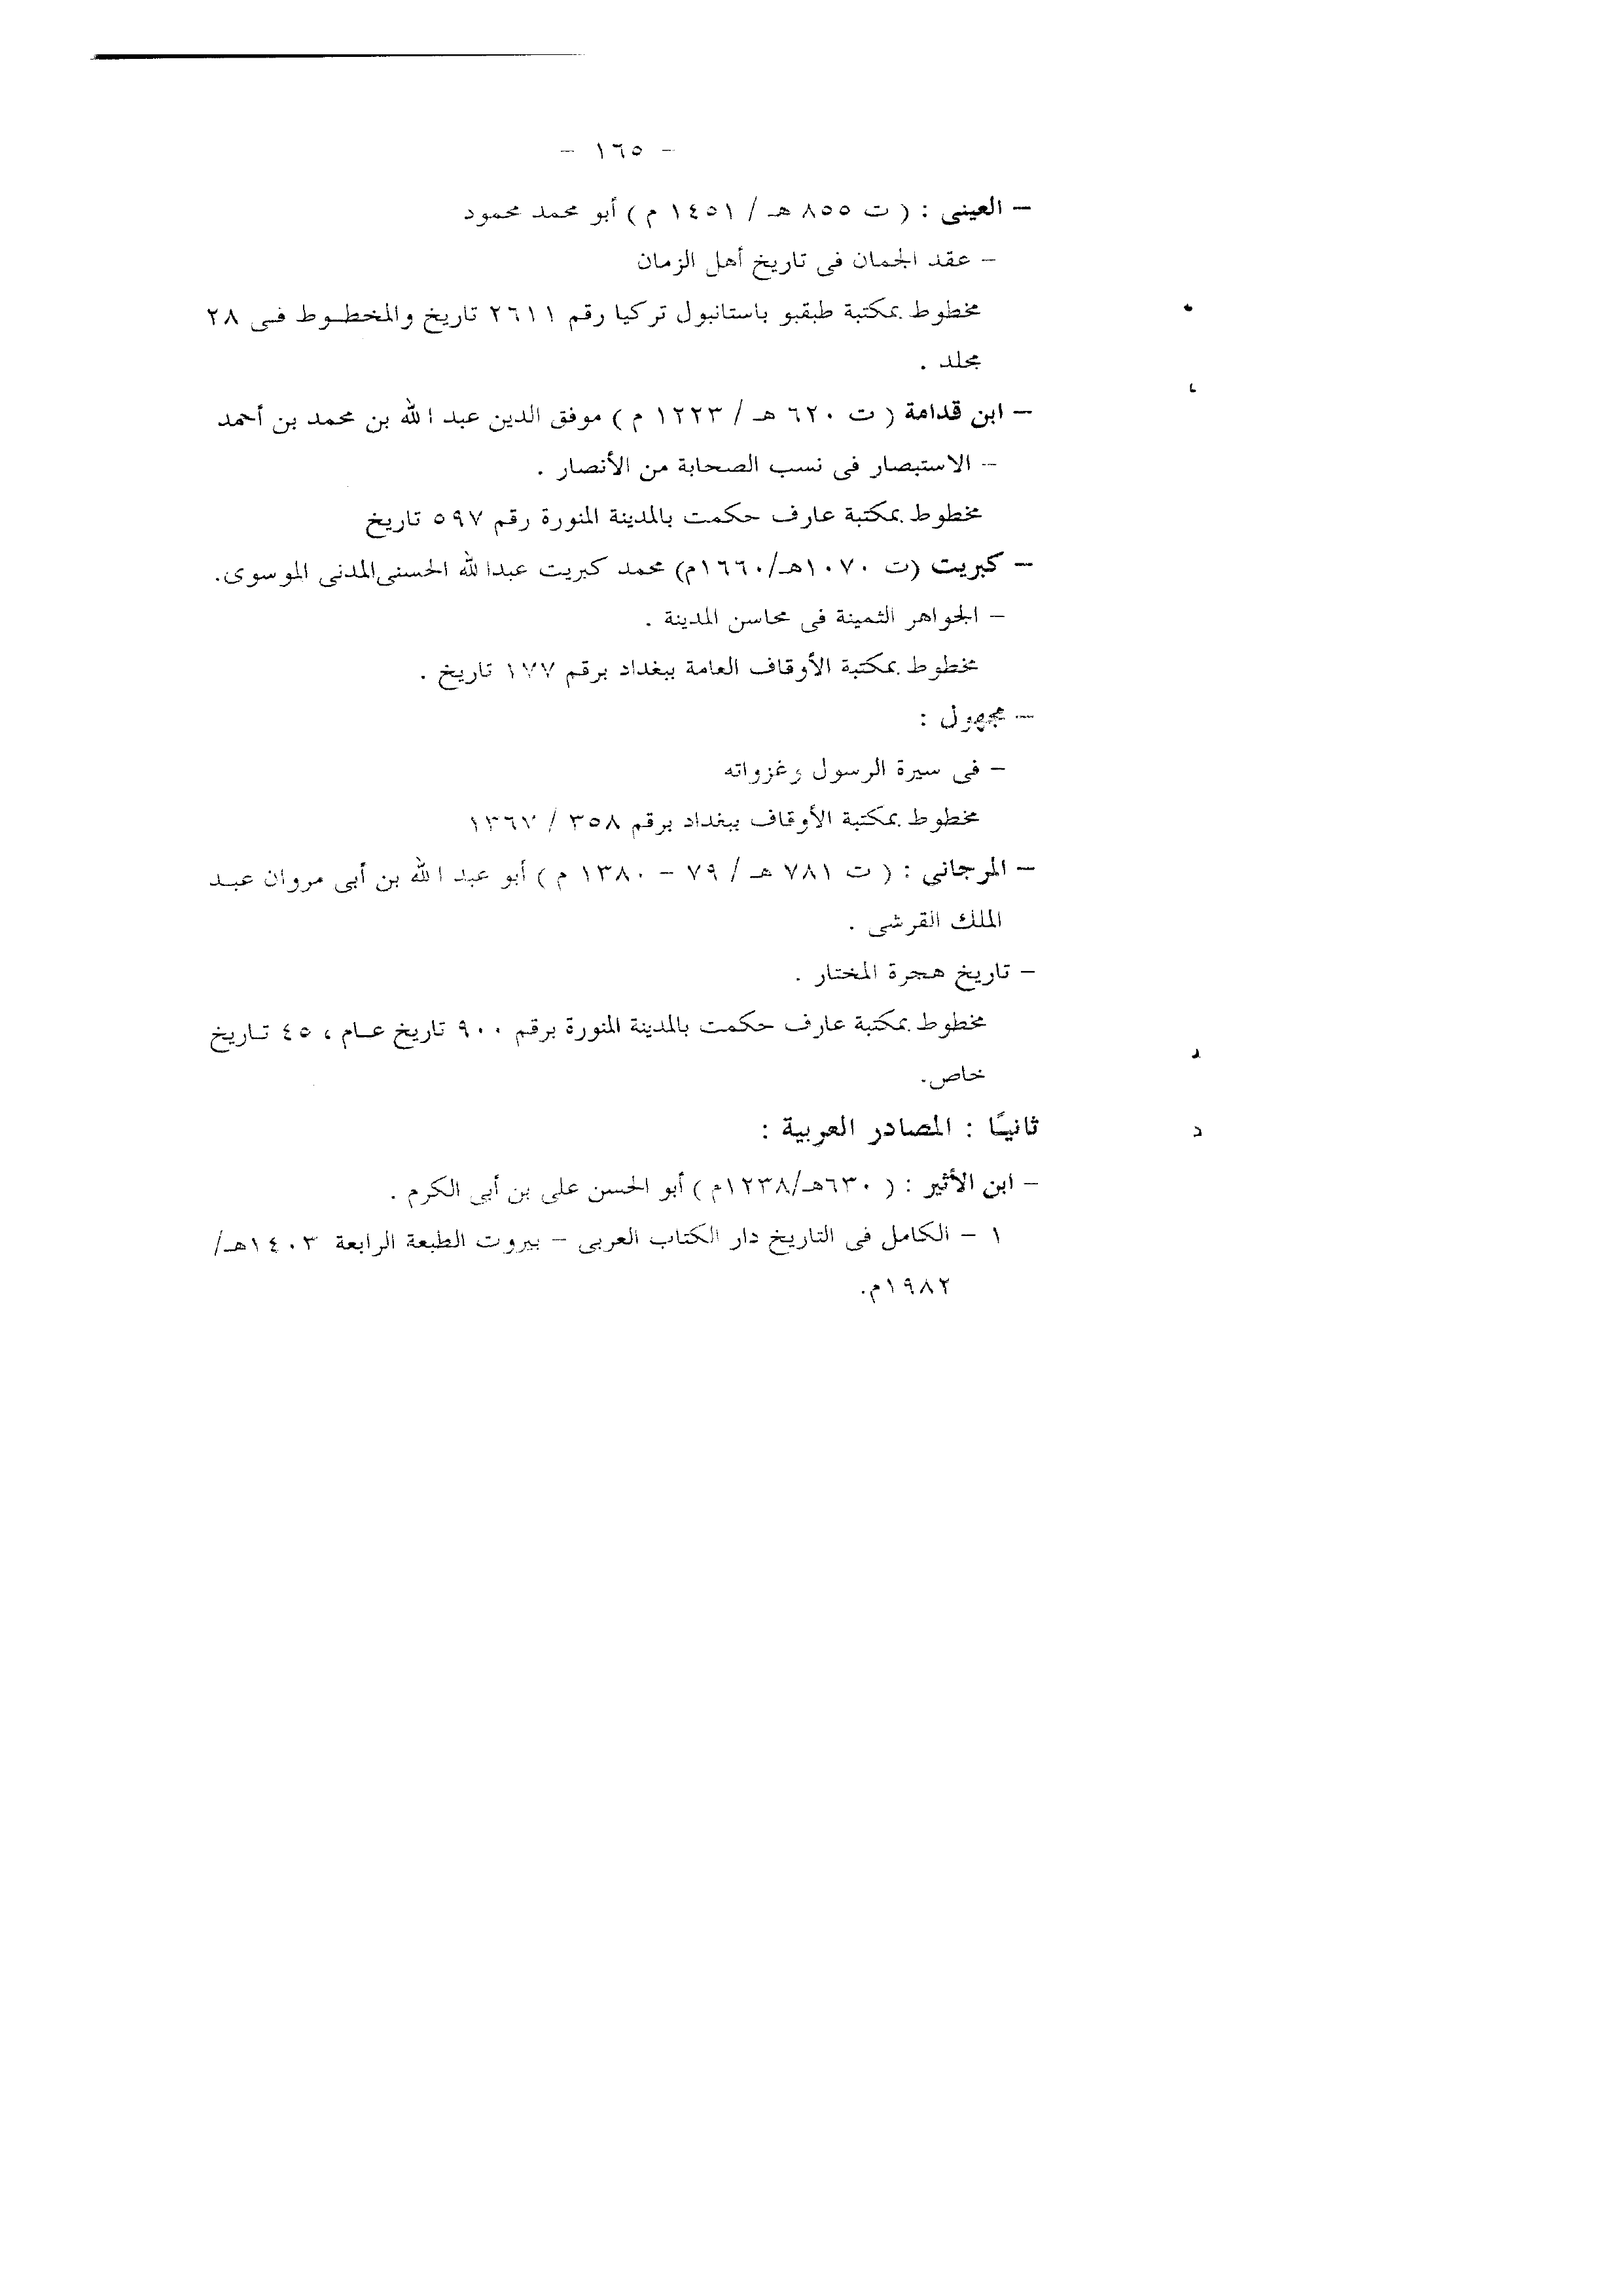 - ١٦٥ -
- العينى : ( ت ٨٥٥ هـ / ١٤٥١ م ) أبو محمد محمود
- عقد الجمان فى تاريخ أهل الزمان
مخطوط بمكتبة طبقبو باستانبول تركيا رقم ٢٦١١ تاريخ والمخطوط فى ٢٨
مجلد .
- ابن قدامة ( ت ٦٢٠ هـ / ١٢٢٣ م ) موفق الدين عبد الله بن محمد بن أحمد
- الاستبصار فى نسب الصحابة من الأنصار .
مخطوط بمكتبة عارف حكمت بالمدينة المنورة رقم ٥٩٧ تاريخ
- كبريت (ت ١٠٧٠هـ/١٦٦٠م) محمد كبريت عبدالله الحسنى المدنى الموسوى.
- الجواهر الثمينة فى محاسن المدينة .
مخطوط بمكتبة الأوقاف العامة ببغداد برقم ١٧٧ تاريخ .
- مجهول :
- فى سيرة الرسول وغزواته
مخطوط بمكتبة الأوقاف ببغداد برقم ٣٥٨ / ١٣٦٧
- المرجانى : ( ت ٧٨١ هـ / ٧٩ - ١٣٨٠ م ) أبو عبد الله بن أبى مروان عبد
الملك القرشى .
- تاريخ هجرة المختار .
مخطوط بمكتبة عارف حكمت بالمدينة المنورة برقم ٩٠٠ تاريخ عام ، ٤٥ تاريخ
خاص.
ثانيًا : المصادر العربية :
- ابن الأثير : ( ٦٣٠هـ/١٢٣٨م ) أبو الحسن على بن أبى الكرم .
١ - الكامل فى التاريخ دار الكتاب العربى - بيروت الطبعة الرابعة ١٤٠٣هـ/
١٩٨٢م.